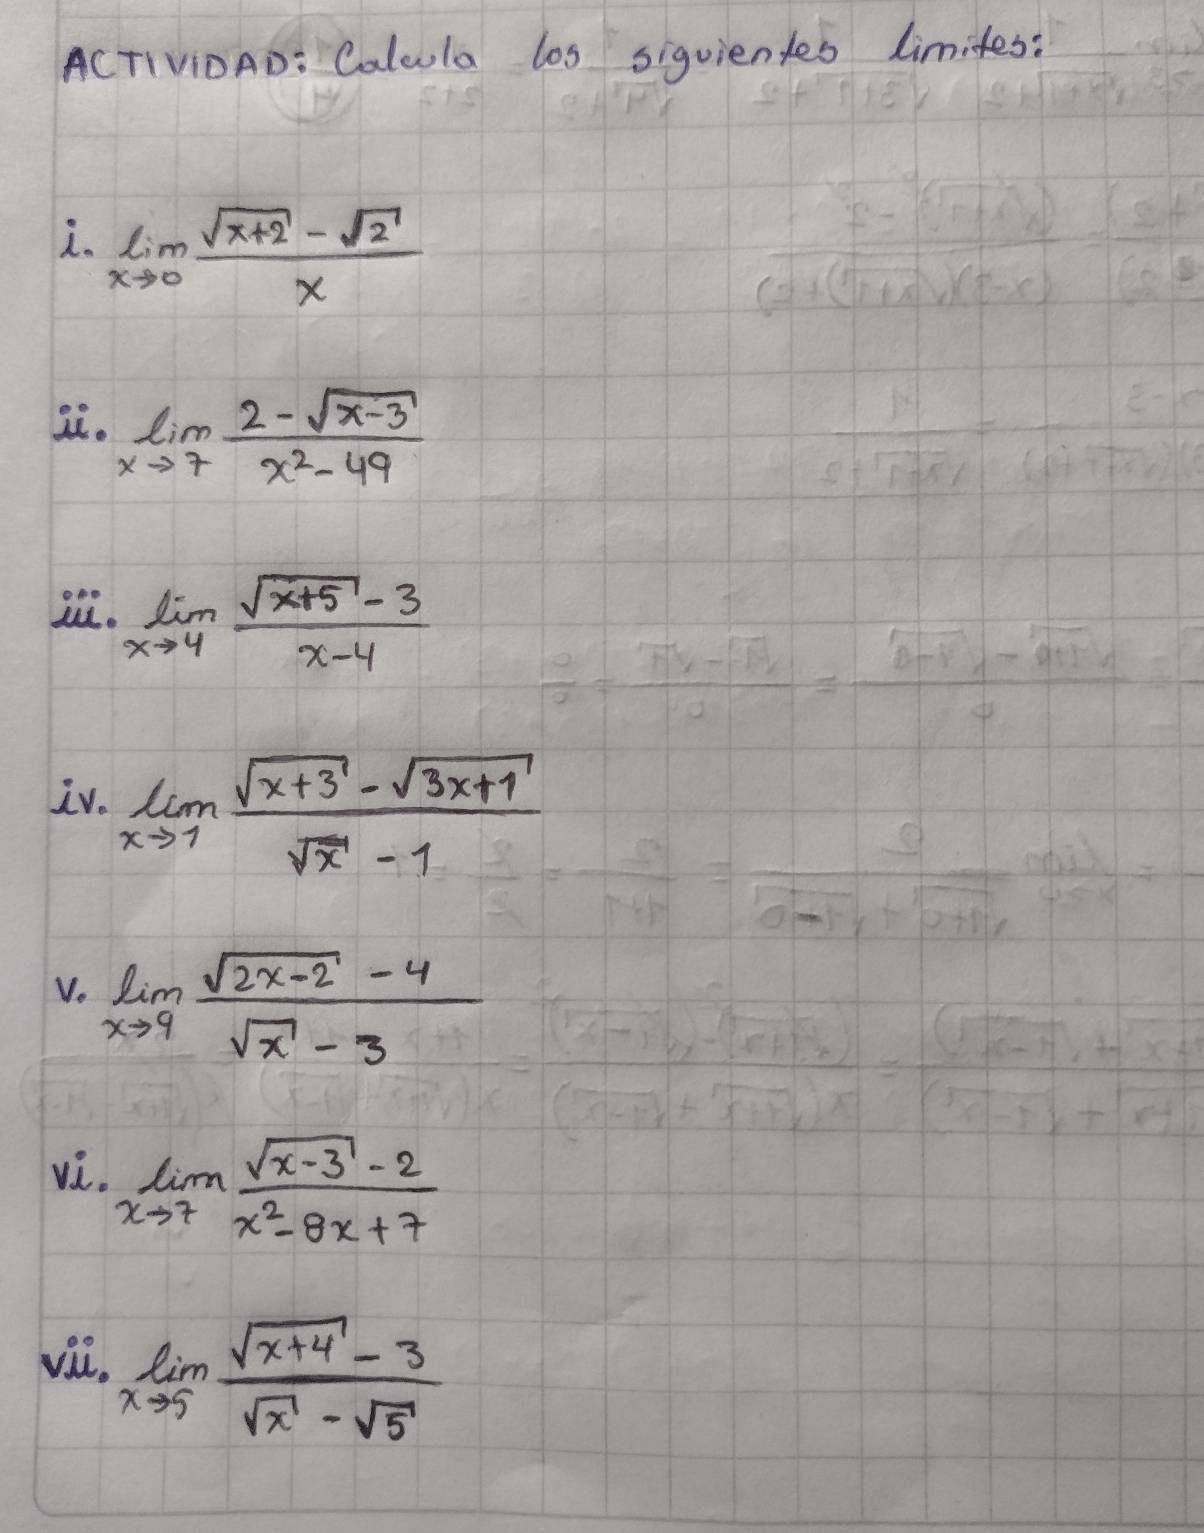 ACTIVIDAD: Calcula los siguientes limites:
i. lim x→0 (√(x+2) - √2) / x
ii. lim x→7 (2 - √(x-3)) / (x² - 49)
iii. lim x→4 (√(x+5) - 3) / (x-4)
iv. lim x→1 (√(x+3) - √(3x+1)) / (√x - 1)
v. lim x→9 (√(2x-2) - 4) / (√x - 3)
vi. lim x→7 (√(x-3) - 2) / (x² - 8x + 7)
vii. lim x→5 (√(x+4) - 3) / (√x - √5)